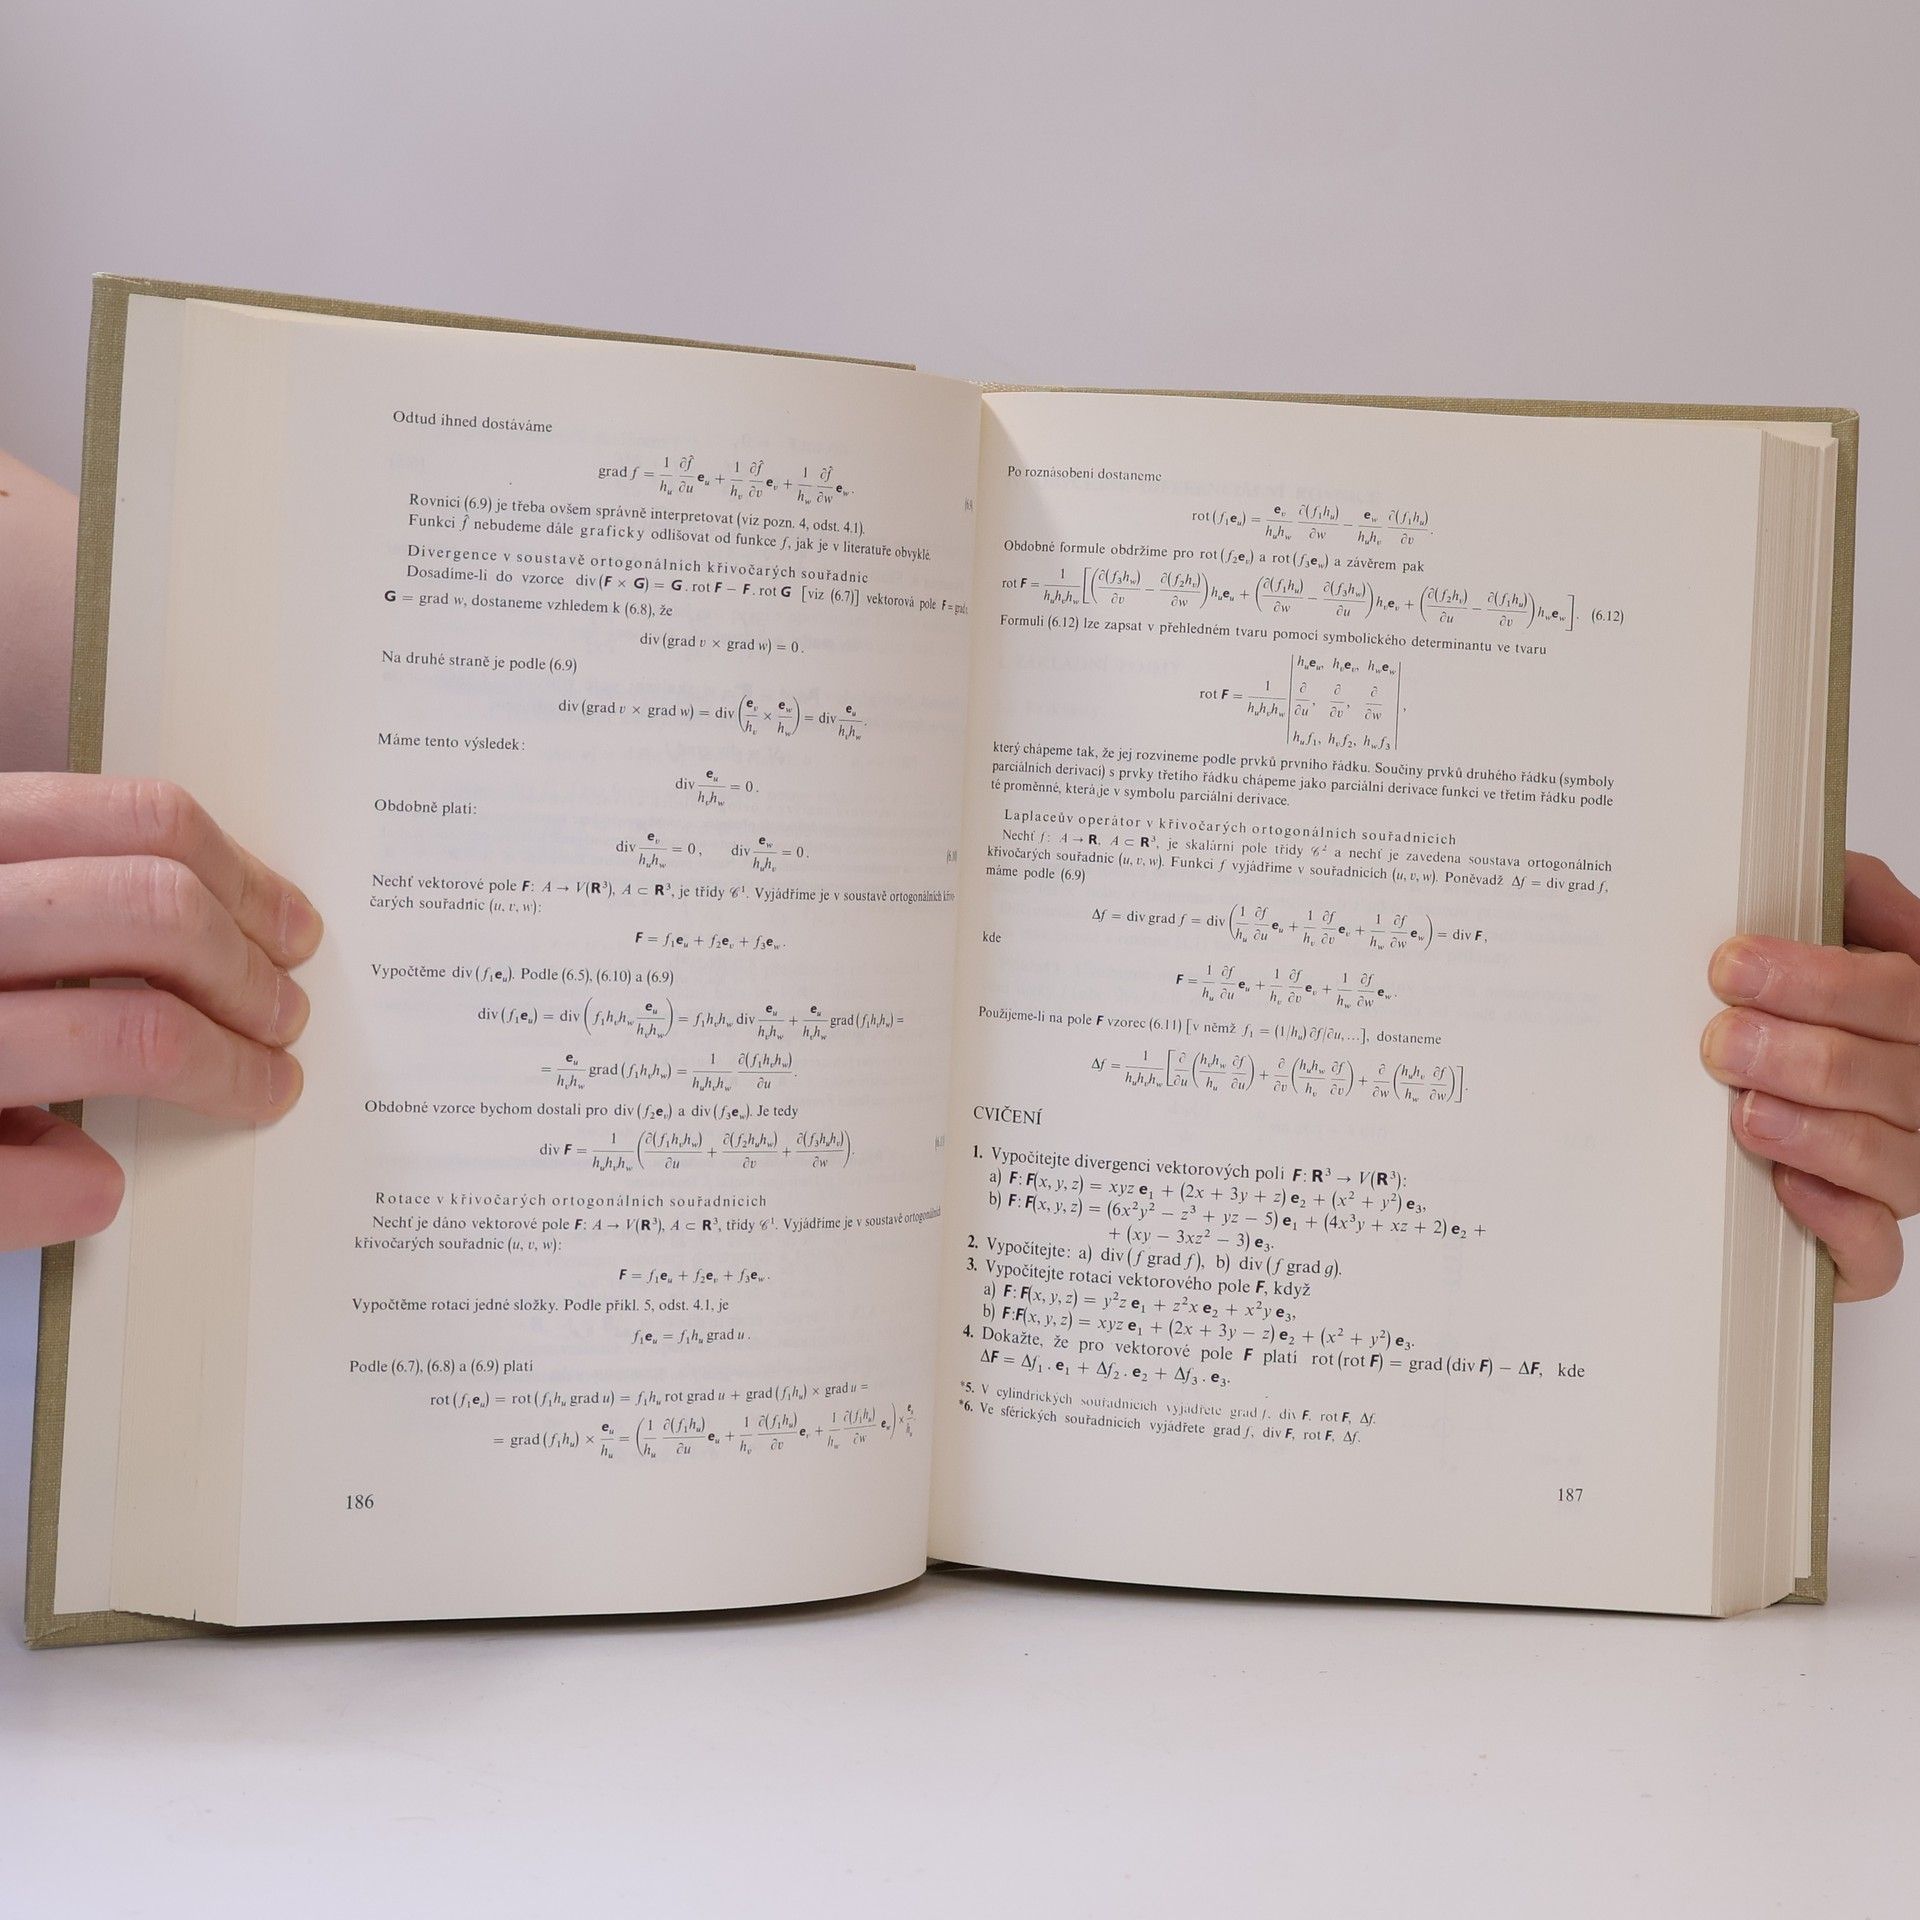 Odtud ihned dostáváme
grad f = 1/h_u ∂f̂/∂u e_u + 1/h_v ∂f̂/∂v e_v + 1/h_w ∂f̂/∂w e_w.
Rovnici (6.9) je třeba ovšem správně interpretovat (viz pozn. 4, odst. 4.1).
Funkci f̂ nebudeme dále graficky odlišovat od funkce f, jak je v literatuře obvyklé.
Divergence v soustavě ortogonálních křivočarých souřadnic
Dosadíme-li do vzorce div (F × G) = G . rot F − F . rot G [viz (6.7)] vektorová pole F =
G = grad w, dostaneme vzhledem k (6.8), že
div (grad v × grad w) = 0.
Na druhé straně je podle (6.9)
div (grad v × grad w) = div (e_v/h_v × e_w/h_w) = div e_u/(h_v h_w).
Máme tento výsledek:
div e_u/(h_v h_w) = 0.
Obdobně platí:
div e_v/(h_u h_w) = 0, div e_w/(h_u h_v) = 0.
Nechť vektorové pole F: A → V(R³), A ⊂ R³, je třídy 𝒞¹. Vyjádříme je v soustavě ortogonálních křivo-
čarých souřadnic (u, v, w):
F = f₁e_u + f₂e_v + f₃e_w.
Vypočtěme div (f₁e_u). Podle (6.5), (6.10) a (6.9)
div (f₁e_u) = div (f₁h_v h_w e_u/(h_v h_w)) = f₁h_v h_w div e_u/(h_v h_w) + e_u/(h_v h_w) grad (f₁h_v h_w) =
= e_u/(h_v h_w) grad (f₁h_v h_w) = 1/(h_u h_v h_w) ∂(f₁h_v h_w)/∂u.
Obdobné vzorce bychom dostali pro div (f₂e_v) a div (f₃e_w). Je tedy
div F = 1/(h_u h_v h_w) (∂(f₁h_v h_w)/∂u + ∂(f₂h_u h_w)/∂v + ∂(f₃h_u h_v)/∂w).
Rotace v křivočarých ortogonálních souřadnicích
Nechť je dáno vektorové pole F: A → V(R³), A ⊂ R³, třídy 𝒞¹. Vyjádříme je v soustavě ortogonálních
křivočarých souřadnic (u, v, w):
F = f₁e_u + f₂e_v + f₃e_w.
Vypočtěme rotaci jedné složky. Podle příkl. 5, odst. 4.1, je
f₁e_u = f₁h_u grad u.
Podle (6.7), (6.8) a (6.9) platí
rot (f₁e_u) = rot (f₁h_u grad u) = f₁h_u rot grad u + grad (f₁h_u) × grad u =
= grad (f₁h_u) × e_u/h_u = (1/h_u ∂(f₁h_u)/∂u e_u + 1/h_v ∂(f₁h_u)/∂v e_v + 1/h_w ∂(f₁h_u)/∂w e_w) × e_u/h_u.
186
Po roznásobení dostaneme
rot (f₁e_u) = e_v/(h_u h_w) ∂(f₁h_u)/∂w − e_w/(h_u h_v) ∂(f₁h_u)/∂v.
Obdobné formule obdržíme pro rot (f₂e_v) a rot (f₃e_w) a závěrem pak
rot F = 1/(h_u h_v h_w) [(∂(f₃h_w)/∂v − ∂(f₂h_v)/∂w) h_u e_u + (∂(f₁h_u)/∂w − ∂(f₃h_w)/∂u) h_v e_v + (∂(f₂h_v)/∂u − ∂(f₁h_u)/∂v) h_w e_w]. (6.12)
Formuli (6.12) lze zapsat v přehledném tvaru pomocí symbolického determinantu ve tvaru
rot F = 1/(h_u h_v h_w) | h_u e_u, h_v e_v, h_w e_w
∂/∂u, ∂/∂v, ∂/∂w
h_u f₁, h_v f₂, h_w f₃ |,
který chápeme tak, že jej rozvineme podle prvků prvního řádku. Součiny prvků druhého řádku (symboly
parciálních derivací) s prvky třetího řádku chápeme jako parciální derivace funkcí ve třetím řádku podle
té proměnné, která je v symbolu parciální derivace.
Laplaceův operátor v křivočarých ortogonálních souřadnicích
Nechť f: A → R, A ⊂ R³, je skalární pole třídy 𝒞² a nechť je zavedena soustava ortogonálních
křivočarých souřadnic (u, v, w). Funkci f vyjádříme v souřadnicích (u, v, w). Poněvadž Δf = div grad f,
máme podle (6.9)
Δf = div grad f = div (1/h_u ∂f/∂u e_u + 1/h_v ∂f/∂v e_v + 1/h_w ∂f/∂w e_w) = div F,
kde
F = 1/h_u ∂f/∂u e_u + 1/h_v ∂f/∂v e_v + 1/h_w ∂f/∂w e_w.
Použijeme-li na pole F vzorec (6.11) [v němž f₁ = (1/h_u) ∂f/∂u,...], dostaneme
Δf = 1/(h_u h_v h_w) [∂/∂u (h_v h_w/h_u ∂f/∂u) + ∂/∂v (h_u h_w/h_v ∂f/∂v) + ∂/∂w (h_u h_v/h_w ∂f/∂w)].
CVIČENÍ
1. Vypočítejte divergenci vektorových polí F: R³ → V(R³):
a) F: F(x, y, z) = xyz e₁ + (2x + 3y + z) e₂ + (x² + y²) e₃,
b) F: F(x, y, z) = (6x²y² − z³ + yz − 5) e₁ + (4x³y + xz + 2) e₂ +
+ (xy − 3xz² − 3) e₃.
2. Vypočítejte: a) div (f grad f), b) div (f grad g).
3. Vypočítejte rotaci vektorového pole F, když
a) F: F(x, y, z) = y²z e₁ + z²x e₂ + x²y e₃,
b) F:F(x, y, z) = xyz e₁ + (2x + 3y − z) e₂ + (x² + y²) e₃.
4. Dokažte, že pro vektorové pole F platí rot (rot F) = grad (div F) − ΔF, kde
ΔF = Δf₁ . e₁ + Δf₂ . e₂ + Δf₃ . e₃.
*5. V cylindrických souřadnicích vyjádřete grad f, div F, rot F, Δf.
*6. Ve sférických souřadnicích vyjádřete grad f, div F, rot F, Δf.
187